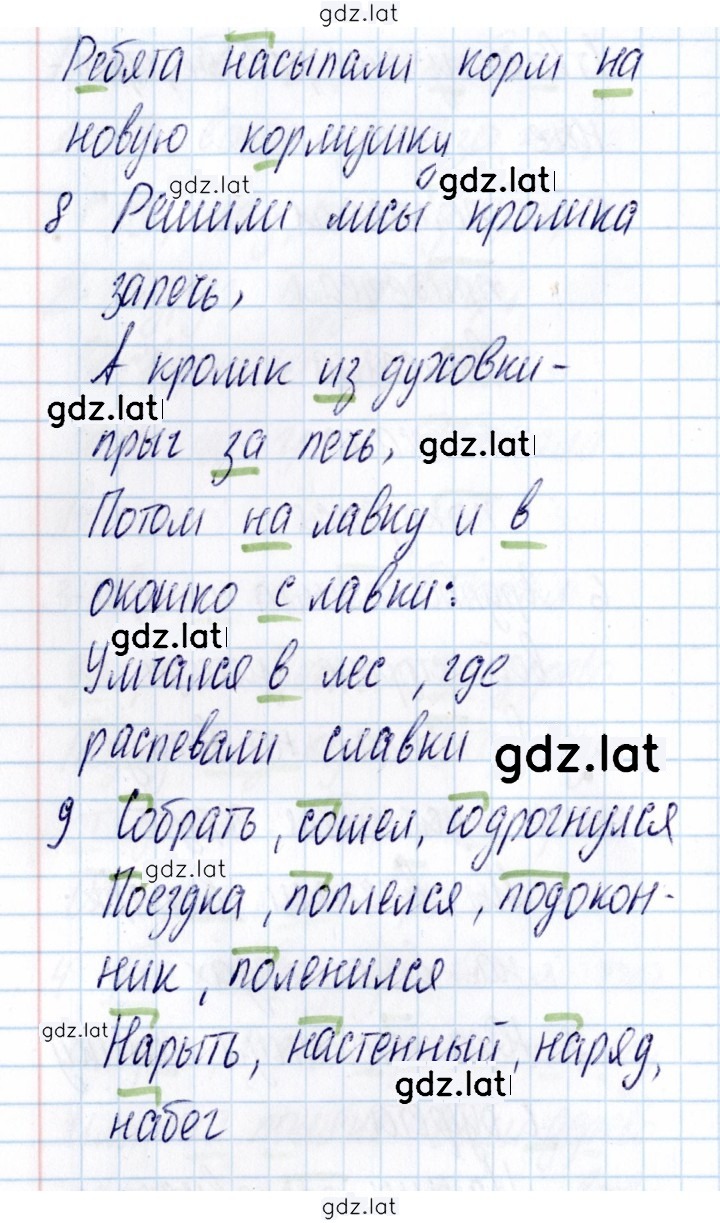 gdz.lat
Ребята насыпали корм на
новую кормушку
gdz.lat gdz.lat
8 Решили лисы кролика
запечь,
А кролик из духовки -
gdz.lat
прыг за печь, gdz.lat
Потом на лавку и в
окошко с лавки:
gdz.lat
Умчался в лес, где
распевали славки
gdz.lat
9 Собрать, сошел, содрогнулся
gdz.lat
Поездка, поплелся, подокон-
ник, поленился
gdz.lat
Нарыть, настенный, наряд,
gdz.lat
набег
gdz.lat